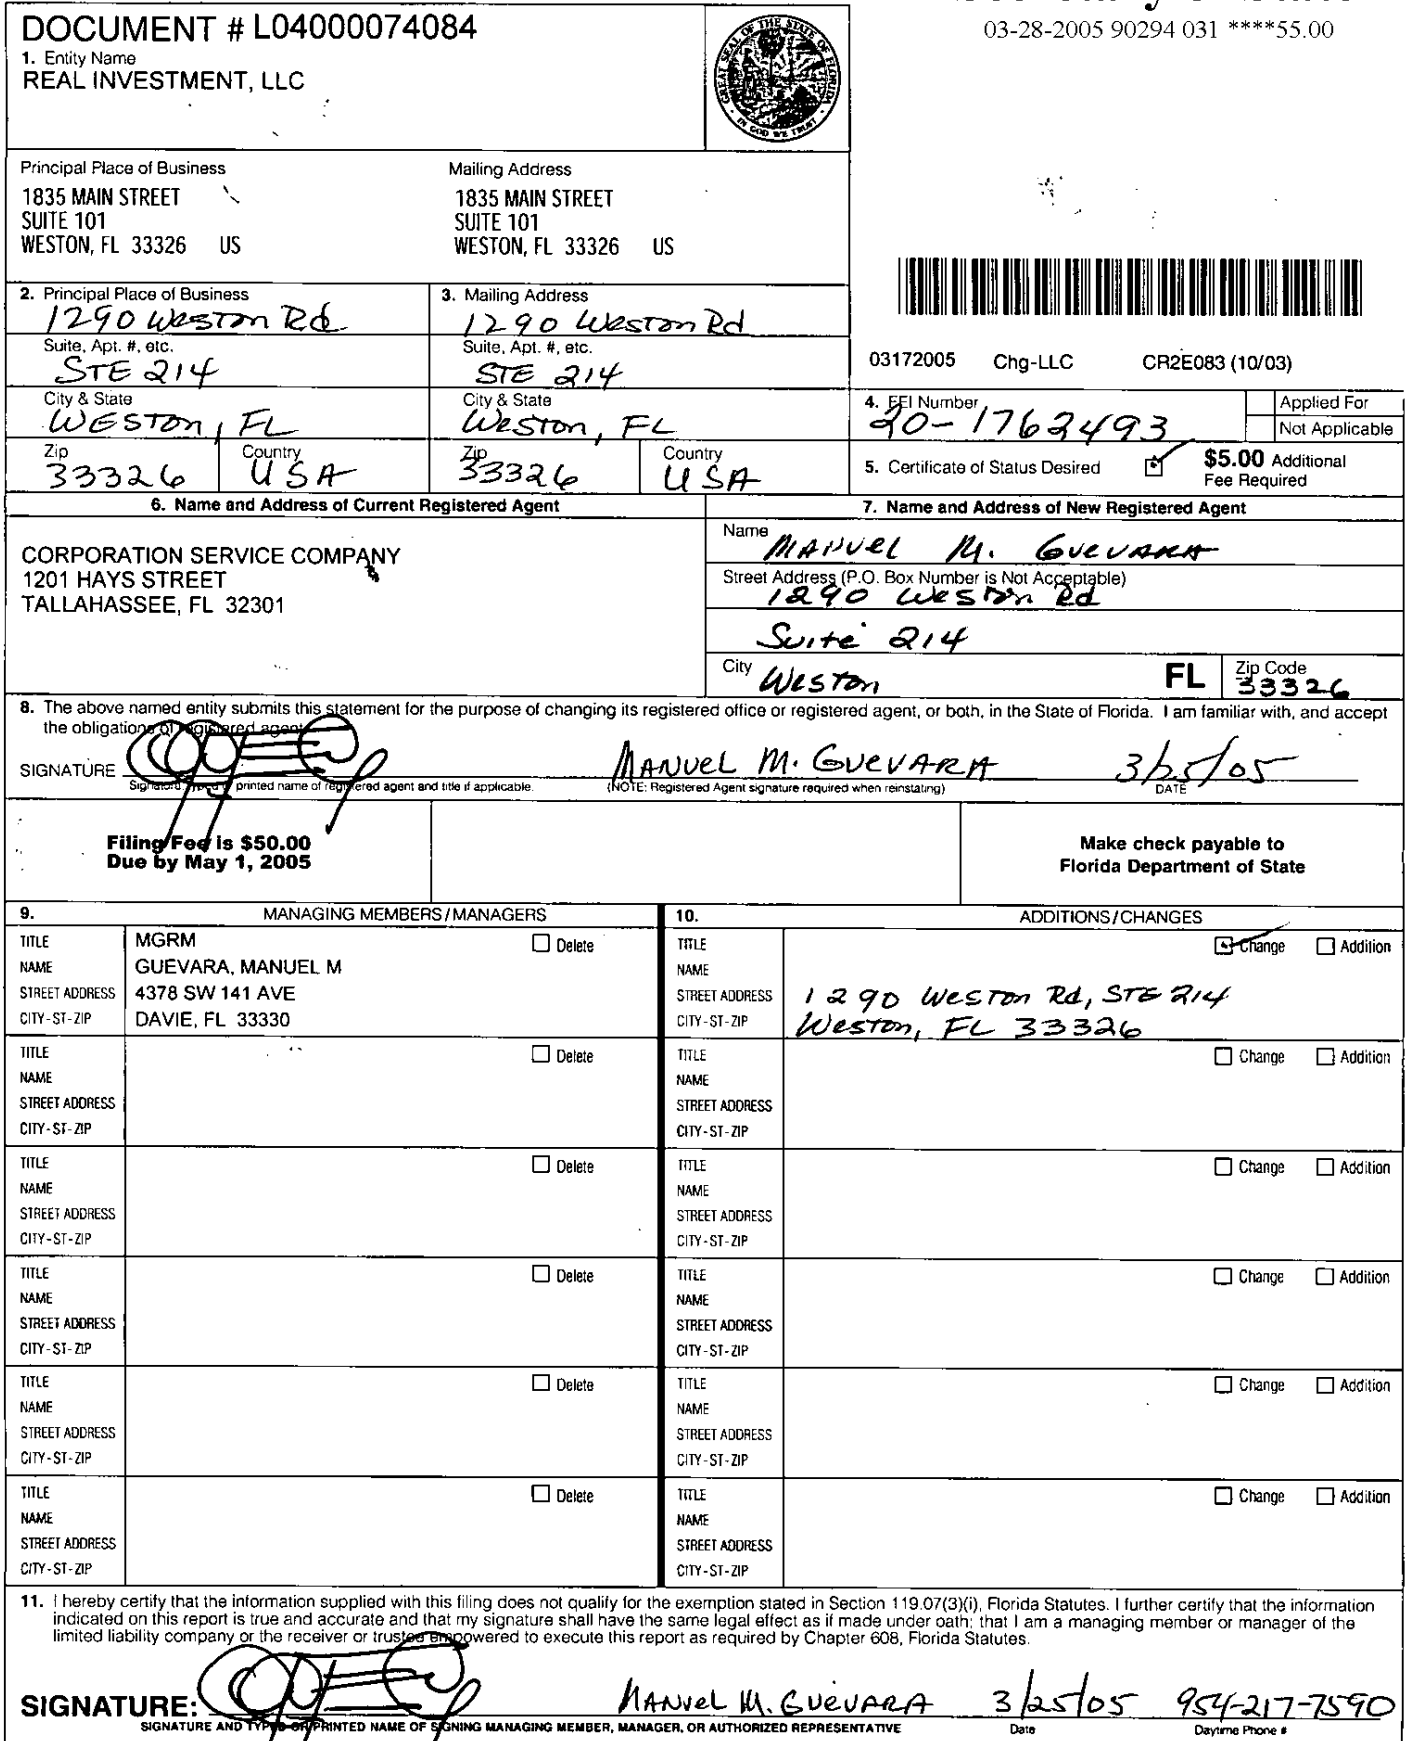 DOCUMENT # L04000074084
1. Entity Name
REAL INVESTMENT, LLC
GREAT SEAL OF THE STATE OF FLORIDA
IN GOD WE TRUST
03-28-2005 90294 031 ****55.00
Principal Place of Business
1835 MAIN STREET
SUITE 101
WESTON, FL 33326 US
Mailing Address
1835 MAIN STREET
SUITE 101
WESTON, FL 33326 US
2. Principal Place of Business
1290 Weston Rd
Suite, Apt. #, etc.
STE 214
City & State
WESTON, FL
Zip
33326
Country
USA
3. Mailing Address
1290 Weston Rd
Suite, Apt. #, etc.
STE 214
City & State
Weston, FL
Zip
33326
Country
USA
03172005 Chg-LLC CR2E083 (10/03)
4. FEI Number
20-1762493
Applied For
Not Applicable
5. Certificate of Status Desired
$5.00 Additional
Fee Required
6. Name and Address of Current Registered Agent
CORPORATION SERVICE COMPANY
1201 HAYS STREET
TALLAHASSEE, FL 32301
7. Name and Address of New Registered Agent
Name
MANUEL M. GUEVARA
Street Address (P.O. Box Number is Not Acceptable)
1290 Weston Rd
Suite 214
City
Weston
FL
Zip Code
33326
8. The above named entity submits this statement for the purpose of changing its registered office or registered agent, or both, in the State of Florida. I am familiar with, and accept
the obligations of registered agent.
SIGNATURE
MANUEL M. GUEVARA
3/25/05
Signature, typed or printed name of registered agent and title if applicable.
(NOTE: Registered Agent signature required when reinstating)
DATE
Filing Fee is $50.00
Due by May 1, 2005
Make check payable to
Florida Department of State
9. MANAGING MEMBERS/MANAGERS
TITLE MGRM
Delete
NAME GUEVARA, MANUEL M
STREET ADDRESS 4378 SW 141 AVE
CITY-ST-ZIP DAVIE, FL 33330
TITLE
Delete
NAME
STREET ADDRESS
CITY-ST-ZIP
TITLE
Delete
NAME
STREET ADDRESS
CITY-ST-ZIP
TITLE
Delete
NAME
STREET ADDRESS
CITY-ST-ZIP
TITLE
Delete
NAME
STREET ADDRESS
CITY-ST-ZIP
TITLE
Delete
NAME
STREET ADDRESS
CITY-ST-ZIP
10. ADDITIONS/CHANGES
TITLE
Change Addition
NAME
STREET ADDRESS 1290 Weston Rd, STE 214
CITY-ST-ZIP Weston, FL 33326
TITLE
Change Addition
NAME
STREET ADDRESS
CITY-ST-ZIP
TITLE
Change Addition
NAME
STREET ADDRESS
CITY-ST-ZIP
TITLE
Change Addition
NAME
STREET ADDRESS
CITY-ST-ZIP
TITLE
Change Addition
NAME
STREET ADDRESS
CITY-ST-ZIP
TITLE
Change Addition
NAME
STREET ADDRESS
CITY-ST-ZIP
11. I hereby certify that the information supplied with this filing does not qualify for the exemption stated in Section 119.07(3)(i), Florida Statutes. I further certify that the information
indicated on this report is true and accurate and that my signature shall have the same legal effect as if made under oath; that I am a managing member or manager of the
limited liability company or the receiver or trustee empowered to execute this report as required by Chapter 608, Florida Statutes.
SIGNATURE:
MANUEL M. GUEVARA 3/25/05 954-217-7590
SIGNATURE AND TYPED OR PRINTED NAME OF SIGNING MANAGING MEMBER, MANAGER, OR AUTHORIZED REPRESENTATIVE
Date
Daytime Phone #